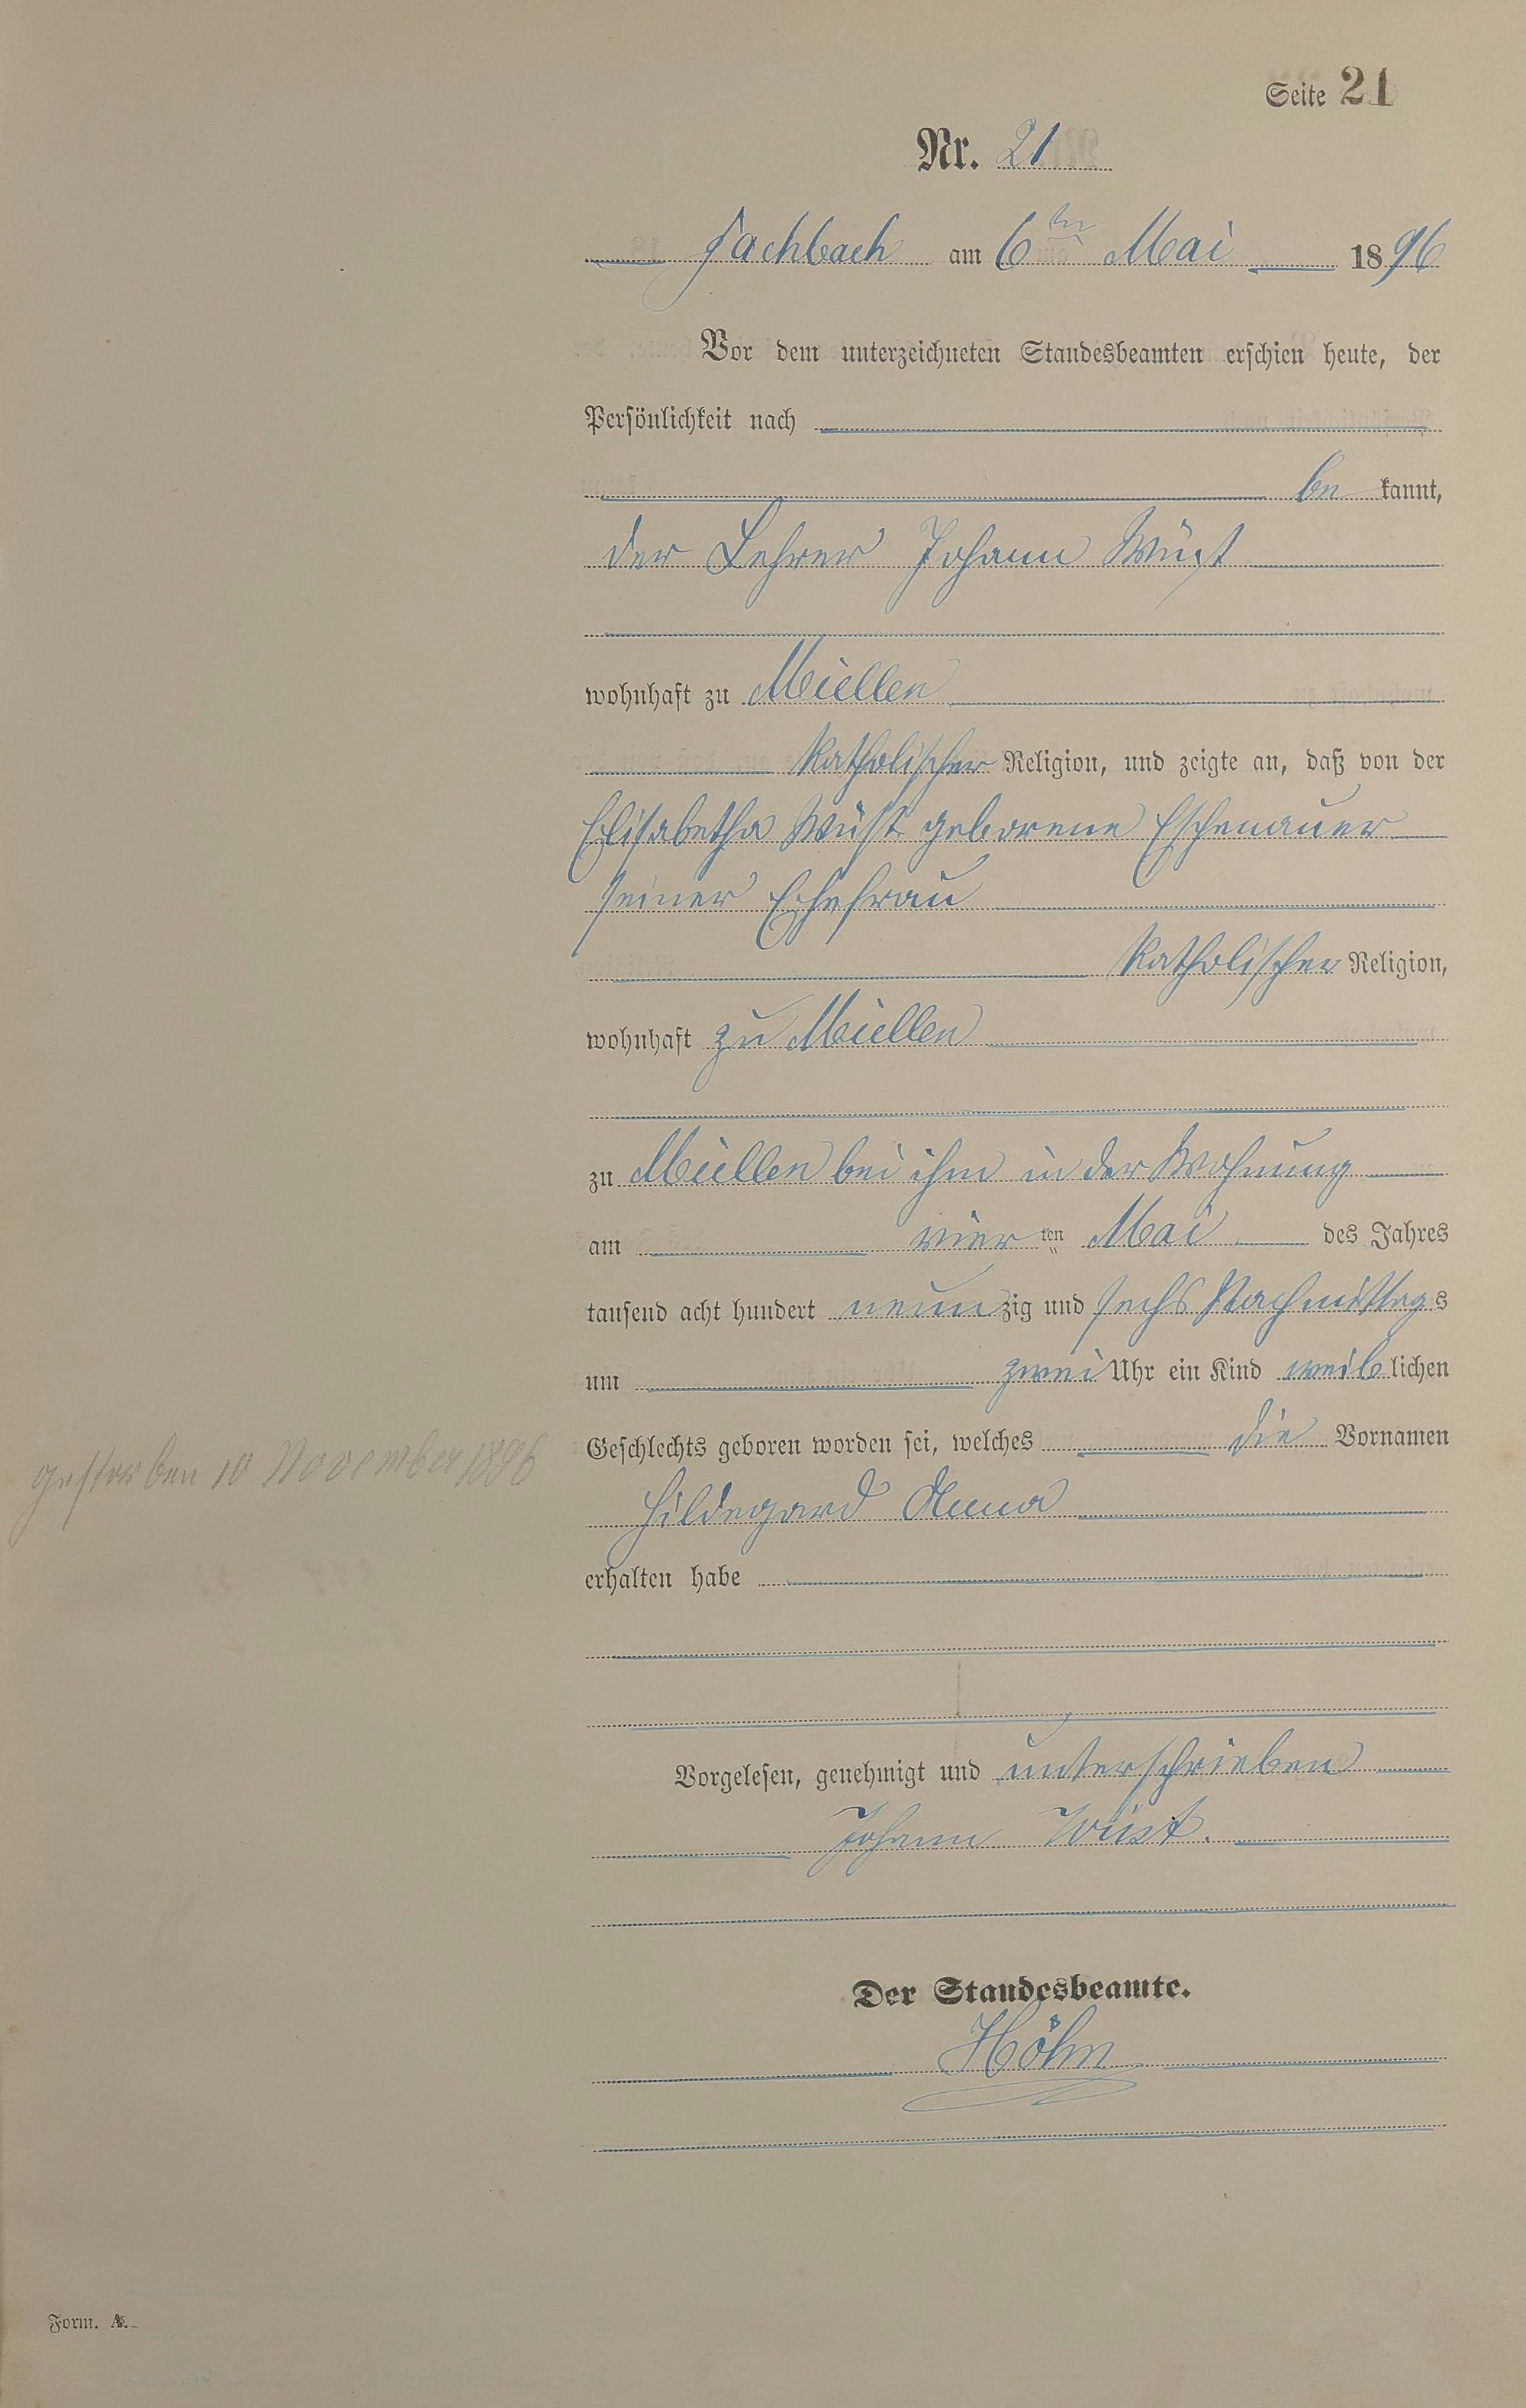 Seite 21
Nr. 21
Fachbach am 6ten Mai 1896
Vor dem unterzeichneten Standesbeamten erschien heute, der
Persönlichkeit nach
be kannt,
der Lehrer Johann Wüst
wohnhaft zu Miellen
katholischer Religion, und zeigte an, daß von der
Elisabetha Wüst geborene Eschenauer
seiner Ehefrau
katholischer Religion,
wohnhaft zu Miellen
zu Miellen bei ihm in der Wohnung
am vier ten Mai des Jahres
tausend acht hundert neun zig und sechs Nachmittag s
um zwei Uhr ein Kind weib lichen
Geschlechts geboren worden sei, welches die Vornamen
gestorben 10 November 1896
Hildegard Anna
erhalten habe
Vorgelesen, genehmigt und unterschrieben
Johann Wüst.
Der Standesbeamte.
Höhn
Form. A.